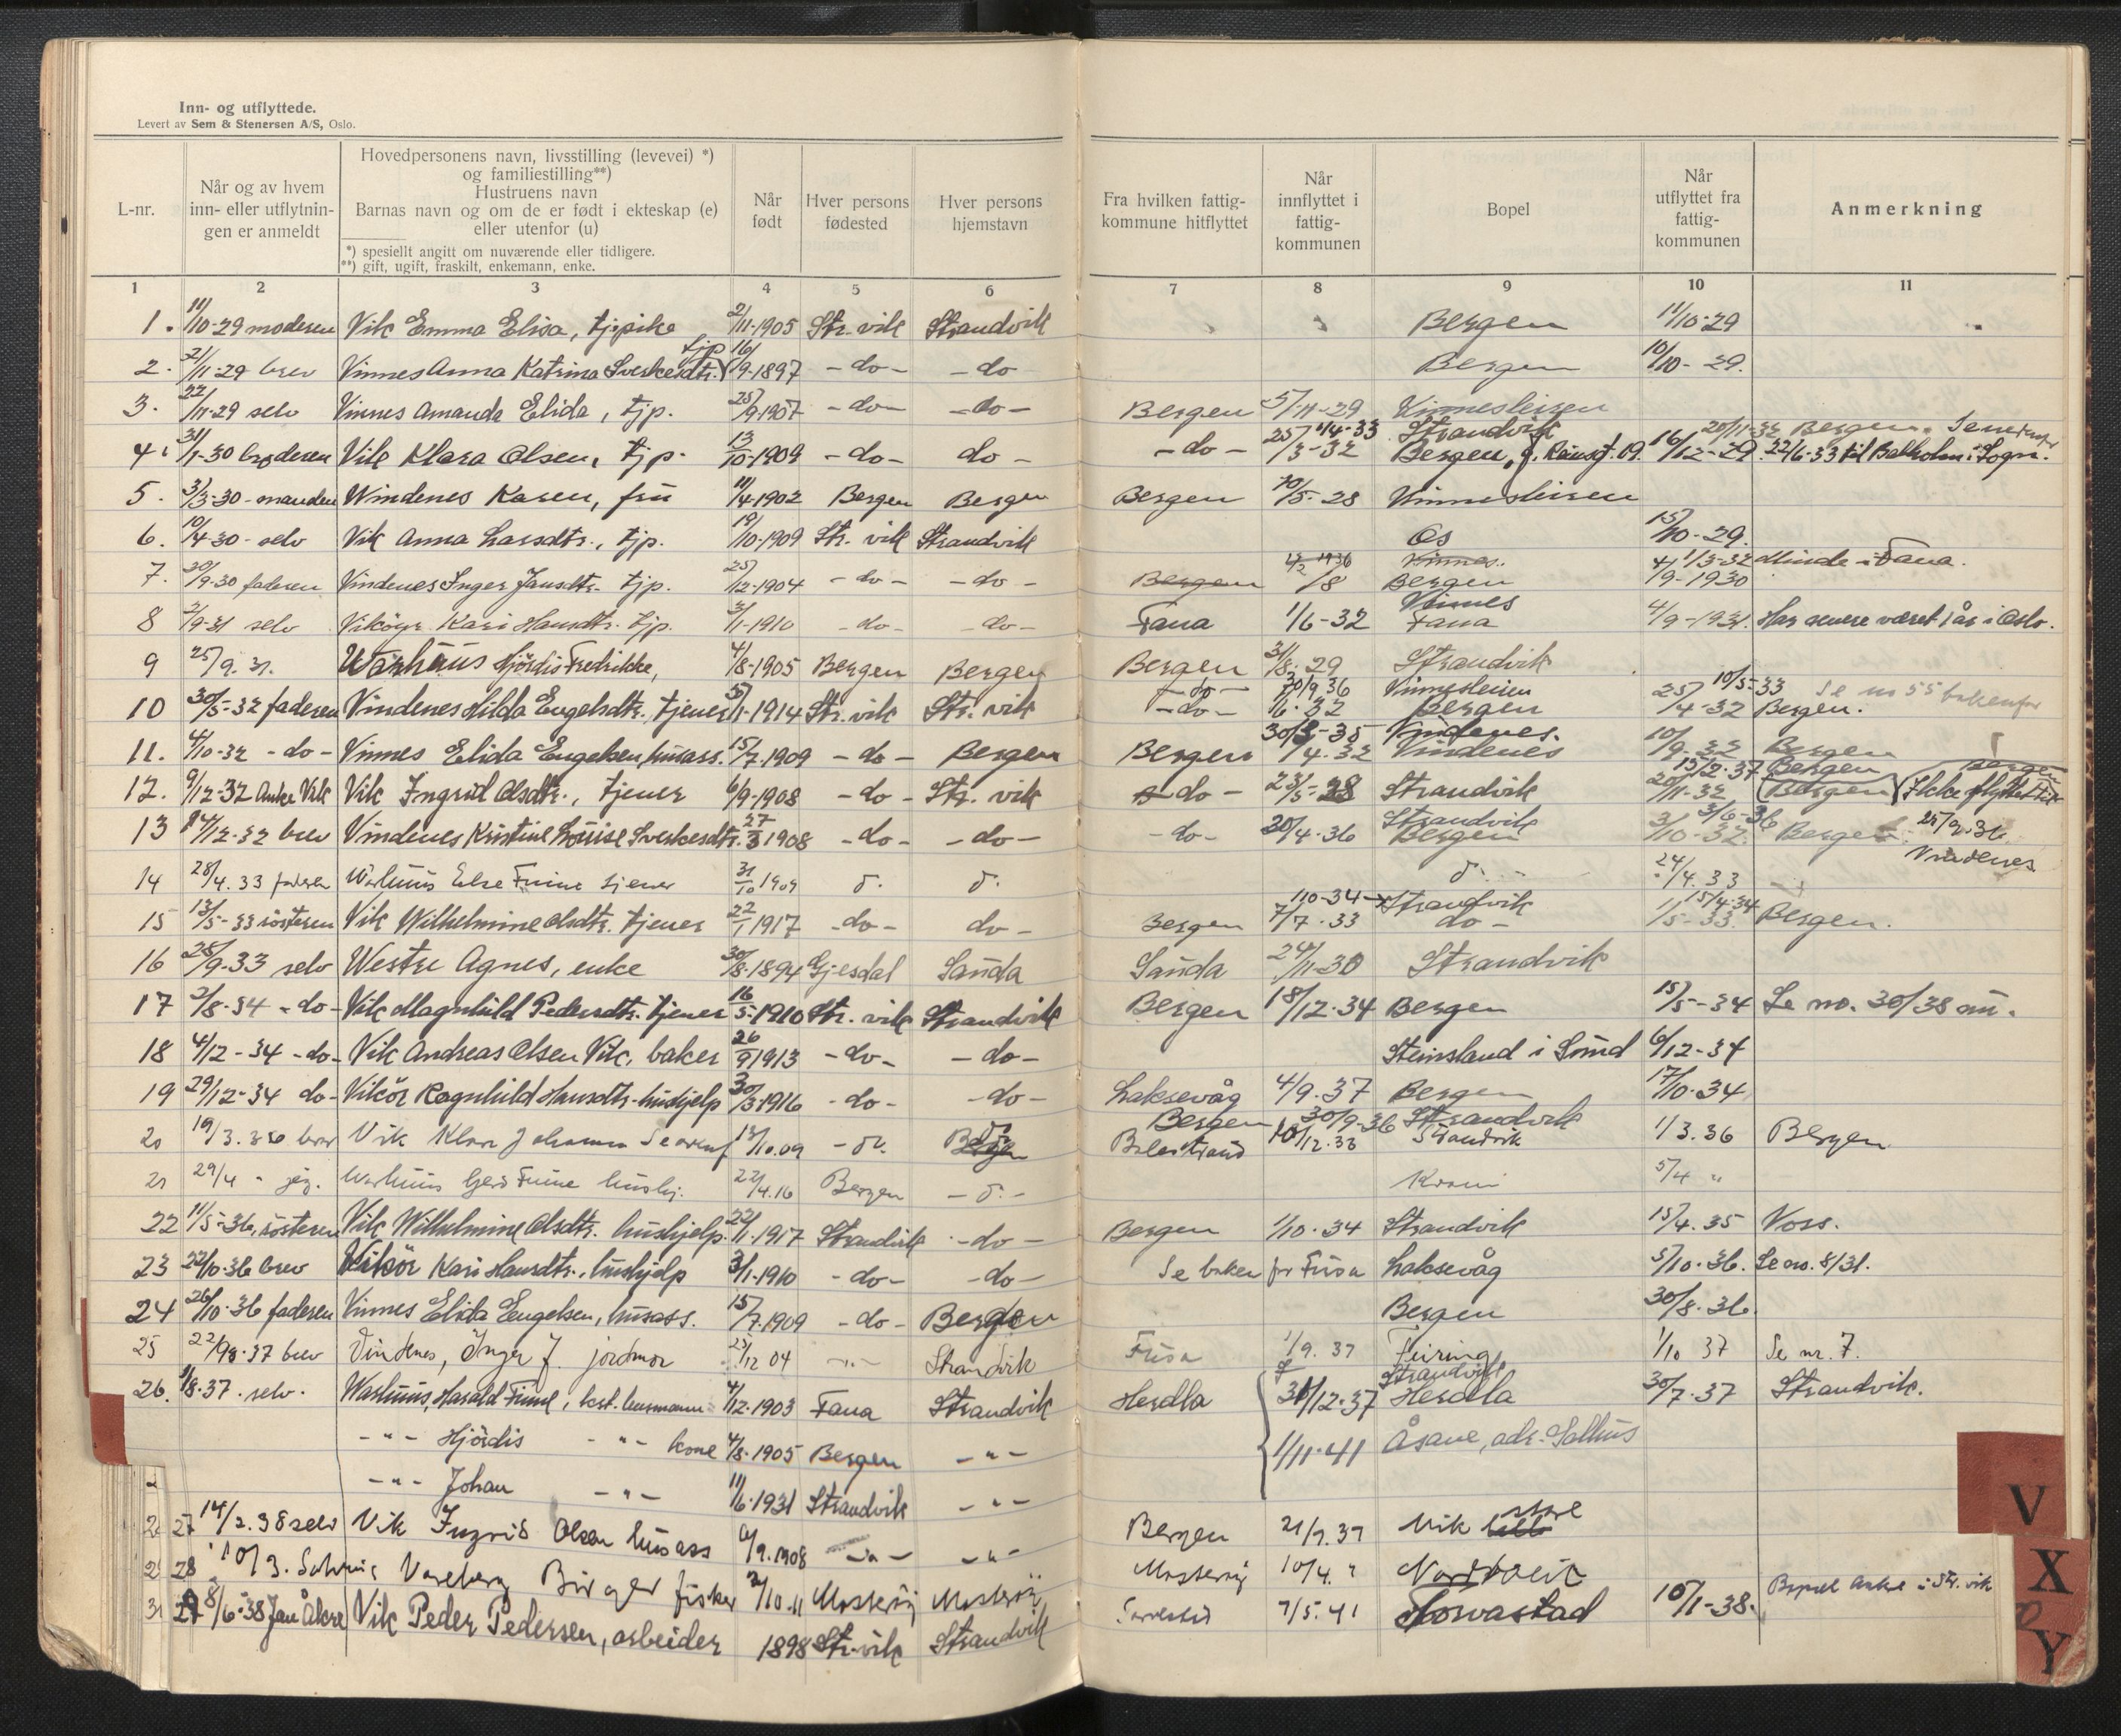 Inn- og utflyttede.
Levert av Sem & Stenersen A/S, Oslo.
L-nr.
Når og av hvem
inn- eller utflytnin-
gen er anmeldt
Hovedpersonens navn, livsstilling (levevei) *)
og familiestilling**)
Hustruens navn
Barnas navn og om de er født i ekteskap (e)
eller utenfor (u)
*) spesielt angitt om nuværende eller tidligere.
**) gift, ugift, fraskilt, enkemann, enke.
Når
født
Hver persons
fødested
Hver persons
hjemstavn
Fra hvilken fattig-
kommune hitflyttet
Når
innflyttet i
fattig-
kommunen
Bopel
Når
utflyttet fra
fattig-
kommunen
Anmerkning
1 2 3 4 5 6 7 8 9 10 11
1. 11/10-29 moderen Vik Emma Elisa, tjpike 2/11-1905 Str. vik Strandvik Bergen 11/10-29
2. 21/11-29 brev Vinnes Anna Katrina Sverkesdtr. tjp 16/9-1897 -do- -do Bergen 10/10-29.
3. 22/11-29 selv Vinnes Amanda Elida, tjp. 25/9-1907 -do- -do- Bergen 5/11-29 Vinnesleiren
1/4-33 Strandvik 20/11-32 Bergen.
4. 31/1-30 broderen Vik Klara Olsen, tjp. 13/10-1909 -do- do- -do- 25/3-32 Bergen, 16/12-29. 22/6-33 til Balholm i Sogn.
5. 3/3-30 manden Windenes Karen, fru 11/4-1902 Bergen Bergen Bergen 20/5-28 Vinnesleiren
6. 10/4-30 selv Vik Anna Larsdtr., tjp. 19/10-1909 Str. vik Strandvik Os 15/10-29.
Vinnes. 1/3-32 Minde i Fana.
7. 20/9-30 faderen Vindenes Inger Jansdtr. tjp. 25/12-1904 -do- -do- Bergen 1/8 Bergen 4/9-1930
Vinnes
8 2/9-31 selv Vikøyr Kari Hansdtr. tjp. 3/1-1910 -do- -do- Fana 1/6-32 Fana 4/9-1931. Har senere været 1 år i Oslo.
9 25/9. 31. Warhuus Hjördis Fredrikke, 4/8-1905 Bergen Bergen Bergen 31/8-29 Strandvik
-do- 20/9 36 Vinnesleiren 10/5-33 Se no 55 bakenfor
10 30/5-32 faderen Vindenes Hilda Engelsdtr., tjener 1914 Str. vik Str. vik -do- 1/6-32 Bergen 25/4-32 Bergen.
30/3-35 Vindenes.
11. 4/10-32 -do- Vinnes Elida Engelsen, husass. 15/7.1909 -do- Bergen Bergen 1/4.32 Vindenes 10/9-32 Bergen
15/2-37 Bergen Bergen
12. 9/12-32 Anke Vik Vik Ingrid Olsdtr., tjener 6/9-1908 -do- Str. vik -do- 23/5-28 Strandvik 20/11-32 (Bergen) Ikke flyttet
Strandvik 3/6-36 25/9-36
13 14/12-32 brev Vindenes Kristine Louise Sverkesdtr. 27/3 1908 -do- -do- -do- 20/4-36 Bergen 3/10-32 Bergen. Vindenes
14 28/4. 33 faderen Warhuus Else Fuine tjener 31/10 1909 24/4. 33
1/10-34 Strandvik 15/4-34
15 13/5-33 søsteren Vik Wilhelmine Olsdtr. tjener 22/1 1917 -do- do- Bergen 7/7-33 do- 1/5-33. Bergen.
16 28/9-33 selv Westre Agnes, enke 30/8-1894 Gjesdal Sauda Sauda 24/11-30 Strandvik
17 2/8-34 -do- Vik Magnhild Pedersdtr. tjener 16/5-1910 Str. vik Strandvik Bergen 18/12-34 Bergen 15/5-34 Se no. 30/38
18 4/12-34 -do- Vik Andreas Olsen Vik, baker 26/9 1913 -do- -do- Steinsland i Sund 6/12-34
19 29/12-34 do- Vikör Ragnhild Hansdtr. hushjelp 30/3-1916 -do- -do- Laksevåg 4/9.37 Bergen 17/10-34
Bergen 30/9-36 Strandvik
20 19/3.36 Vik Klara Johanna 13/10.09 Balestrand 10/12.33 Strandvik 1/3.36 Bergen
21 29/4 Warhuus Gerd Fuine hushj. 22/4.16 Bergen 5/4 "
22 11/5-36, søsteren Vik Wilhelmine Olsdtr. hushjelp 22/1-1917 Strandvik -do- Bergen 1/10-34 Strandvik 15/4.35 Voss.
23 22/10-36 brev Vikör Kari Hansdtr., hushjelp 3/1-1910 -do- -do- Se baken for Fusa Laksevåg 5/10-36. Se no. 8/31.
24 26/10-36 faderen Vinnes Elida Engelsen, husass. 15/7.1909 -do- Bergen Bergen 30/8-36.
25 22/9-37 brev Vindenes, Inger J. jordmor 25/12 04 -"- Strandvik Fusa 1/9. 37 Feiring 1/10 37 Se nr. 7.
Strandvik
26. 1/8-37. selv. Warhuus, Harald Fuine, 4/12-1903 Fana Strandvik Herdla 31/12-37 Herdla 30/7-37 Strandvik.
-"- Hjördis -"- kone 4/8-1905 Bergen -"- 1/11-41 Åsane, adr. Salhus
-"- Johan -"- 11/6-1931 Strandvik -"-
27 14/2.38 selv Vik Ingrid Olsen husass 6/9.1908 -"- -"- Bergen 21/9.37 Vik
28 10/3. Vareberg Birger fisker 2/10-11 Mosterøy Mosterøy Mosterøy 10/4. " Nordtveit
29 8/6-38 Jan Åkre Vik Peder Pedersen, arbeider 1898 Str. vik Strandvik 7/5.41 Torvastad 10/1-38.
V
X
Y